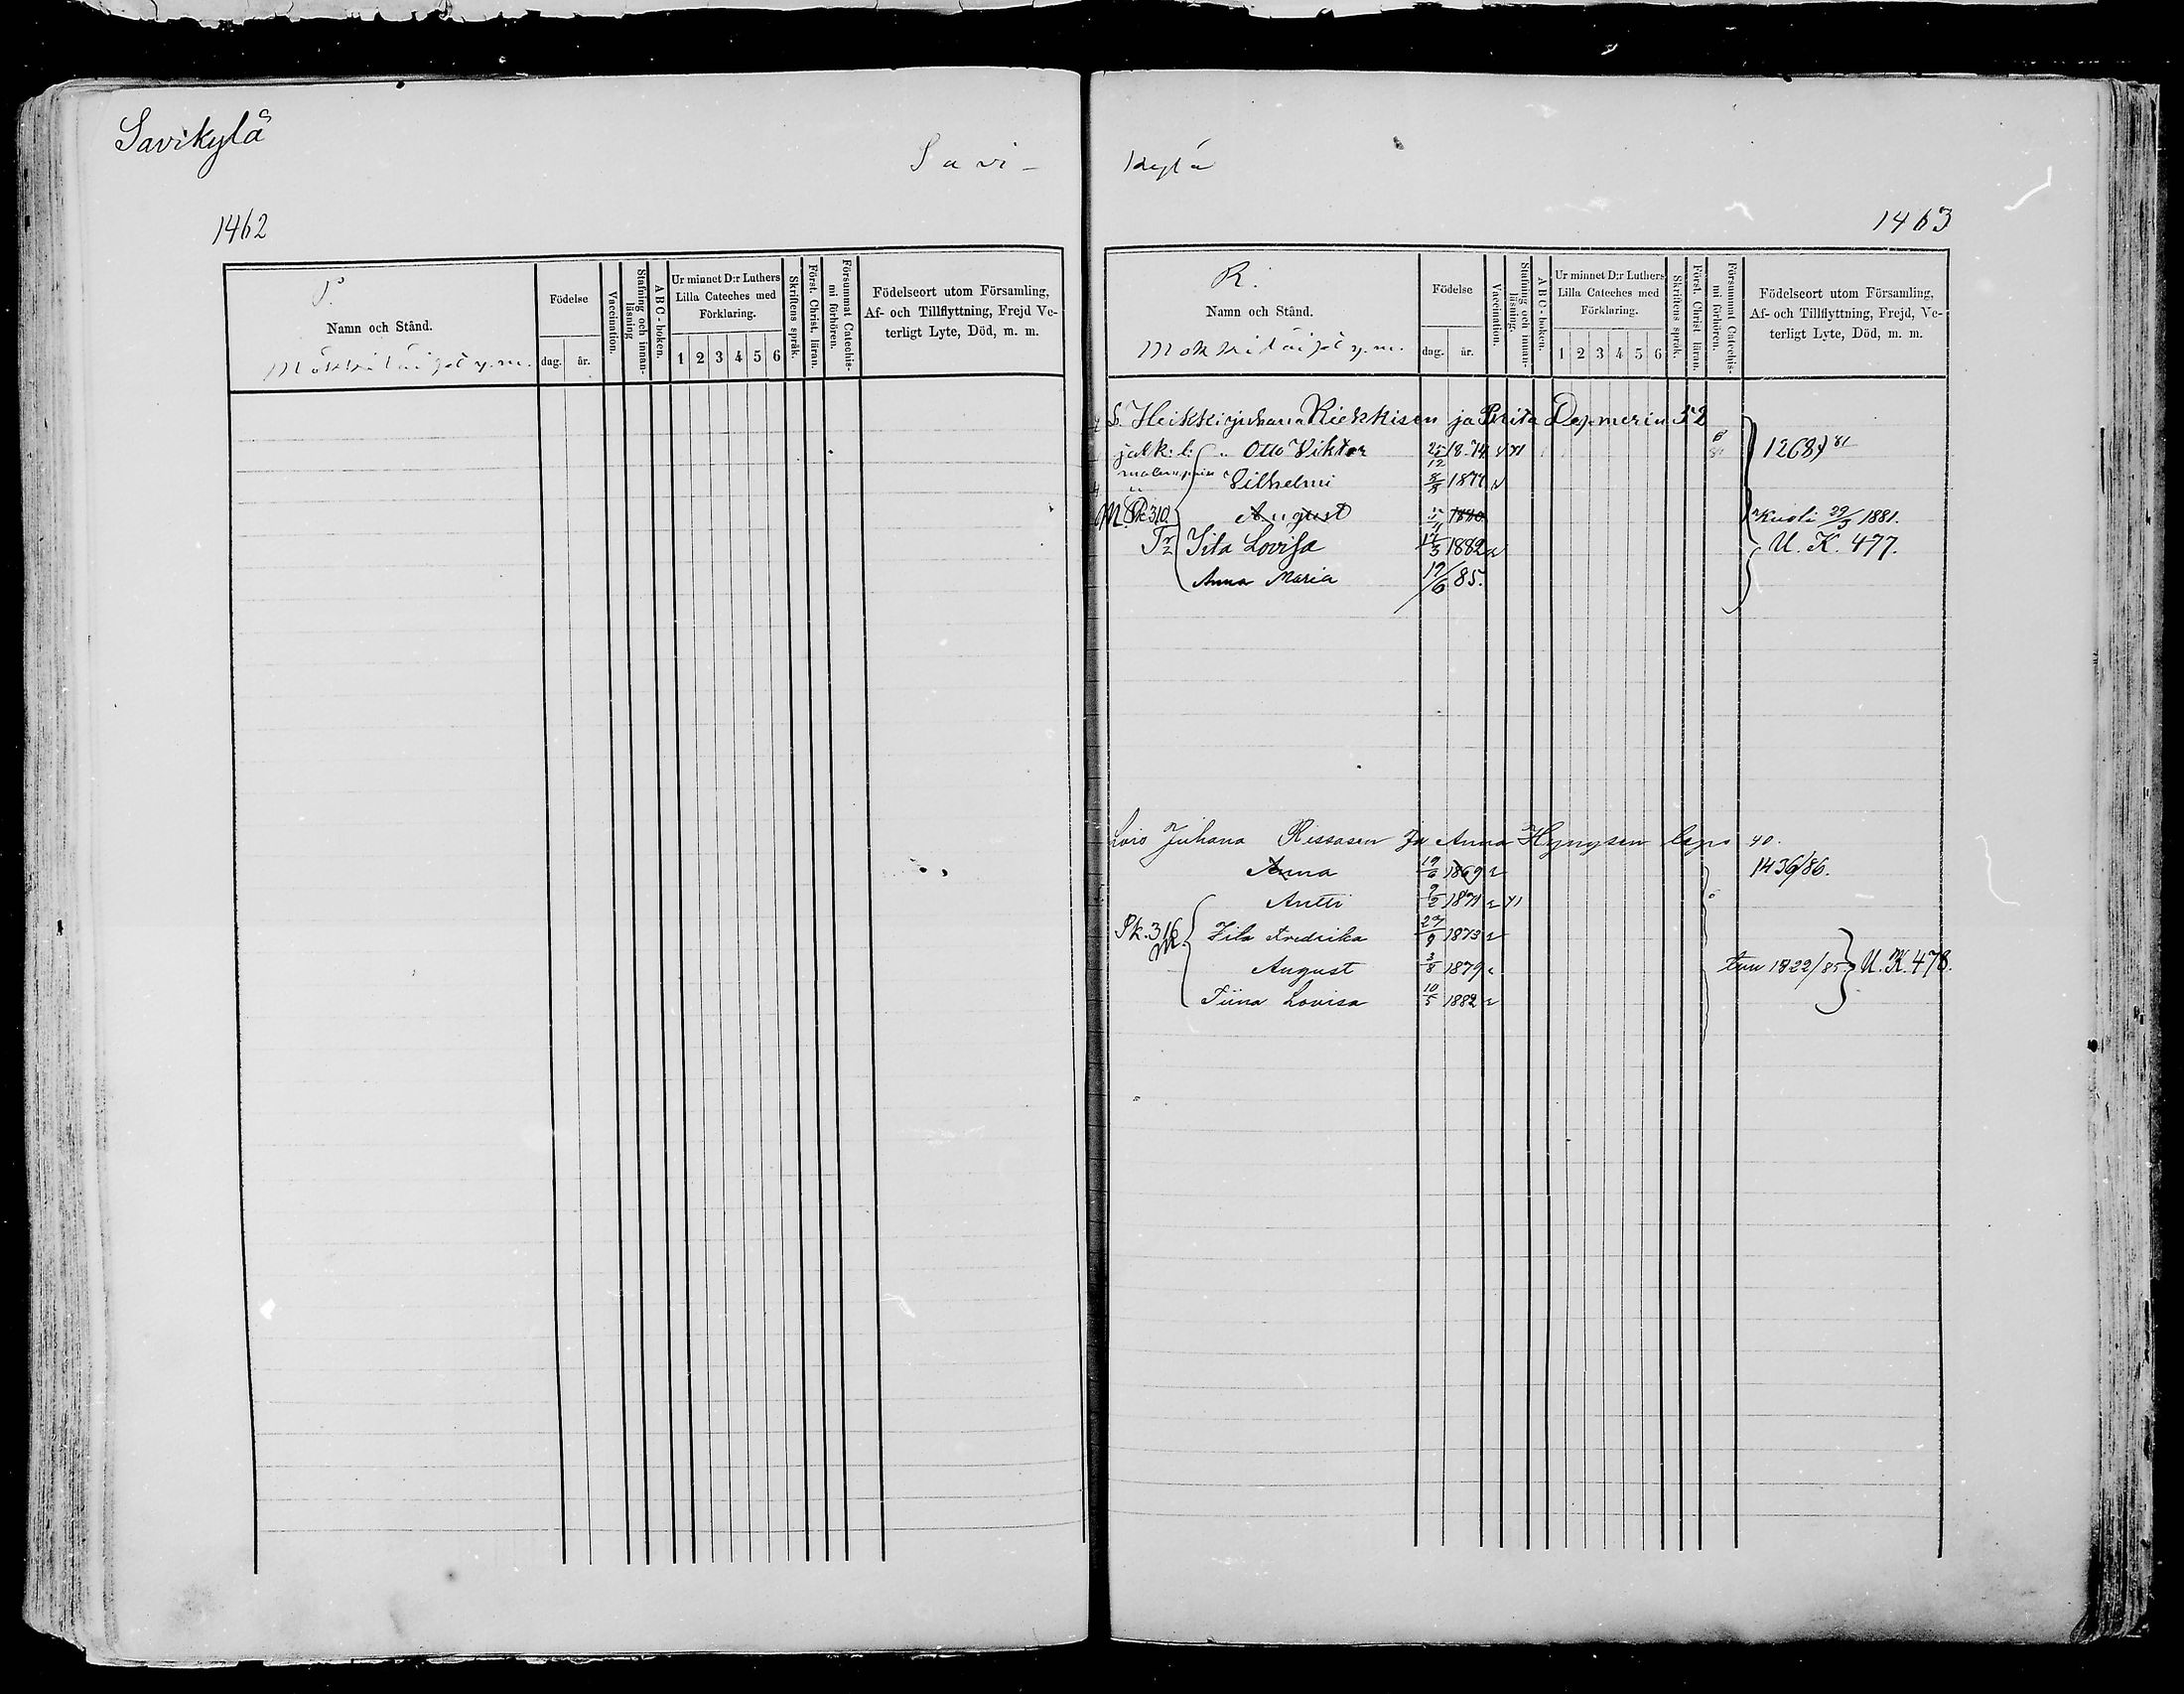 Savikylä
Savi-
kylä
1462
1463
P.
Namn och Stånd.
Mökkiläiset y.m.
Födelse
dag.
år.
Vaccination.
Stafning och innan-
läsning
A B C - boken.
Ur minnet D:r Luthers
Lilla Cateches med
Förklaring.
1 2 3 4 5 6
Skriftens språk.
Först. Christ. läran.
Försummat Catechis-
mi förhören.
Födelseort utom Församling,
Af- och Tillflyttning, Frejd Ve-
terligt Lyte, Död, m. m.
R.
Namn och Stånd.
Mökkiläiset y.m.
Födelse
dag.
år.
Vaccination.
Stafning och innan-
läsning.
A B C - boken.
Ur minnet D:r Luthers
Lilla Cateches med
Förklaring.
1 2 3 4 5 6
Skriftens språk.
Först. Christ. läran.
Försummat Catechis-
mi förhören.
Födelseort utom Församling,
Af- och Tillflyttning, Frejd, Ve-
terligt Lyte, Död, m. m.
Heikki juhana Riekkisen ja Brita 52
jalk: l: Otto Viktor 25/12 18 74 1268 / 81
Vilhelmi 1877
M. Pk 310. August 1880 Kuoli 29/3 1881.
Iita Lovisa 17/3 1882 U. K. 477.
Anna Maria 19/6 85.
Lois Juhana Rissasen ja Anna Hyvysen laps 40.
Anna 19/6 1869 1436/86.
Antti 9/2 1871
Pk. 316 M. Fredrika 27/9 1873
August 3/8 1879 1822/85 U. K. 478.
Tiina Lovisa 10/5 1882